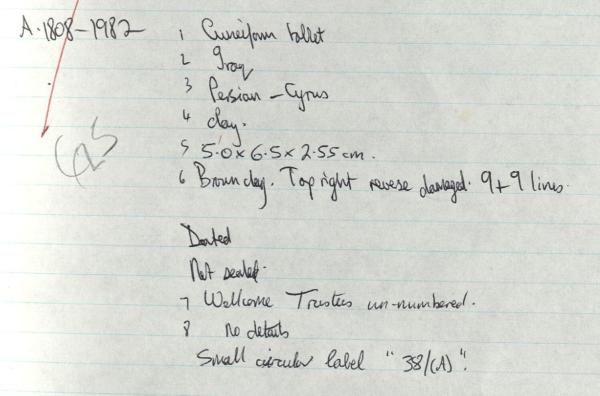 A.1808-1982 1 Cuneiform tablet
2 Iraq
3 Persian - Cyrus
4 clay.
5 5.0 x 6.5 x 2.55 cm.
6 Brown clay. Top right reverse damaged. 9+9 lines.
Dated
Not sealed.
7 Wellcome Trustees un-numbered.
8 no details
Small circular label "38/(A)".